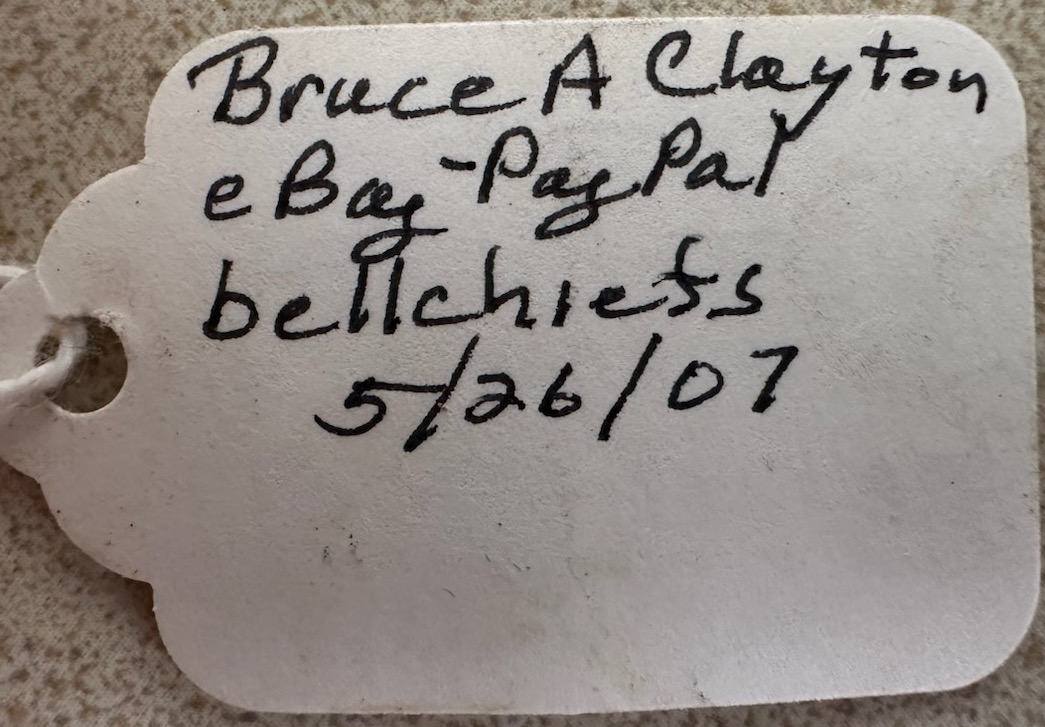 Bruce A Clayton
eBay-PayPal
bellchiefs
5/26/07